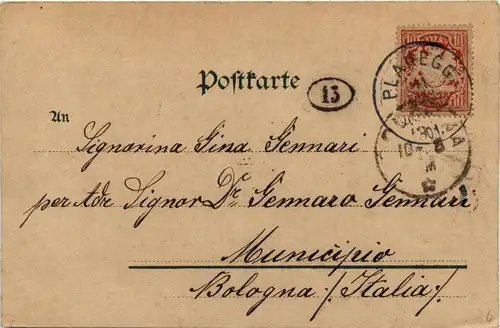 10 BAYERN 10
PLANEGG
1901
Postkarte
13
An
Signorina Gina Gennari
per Adr Signor Dr. Gennaro Gennari
Municipio
Bologna /. Italia/.